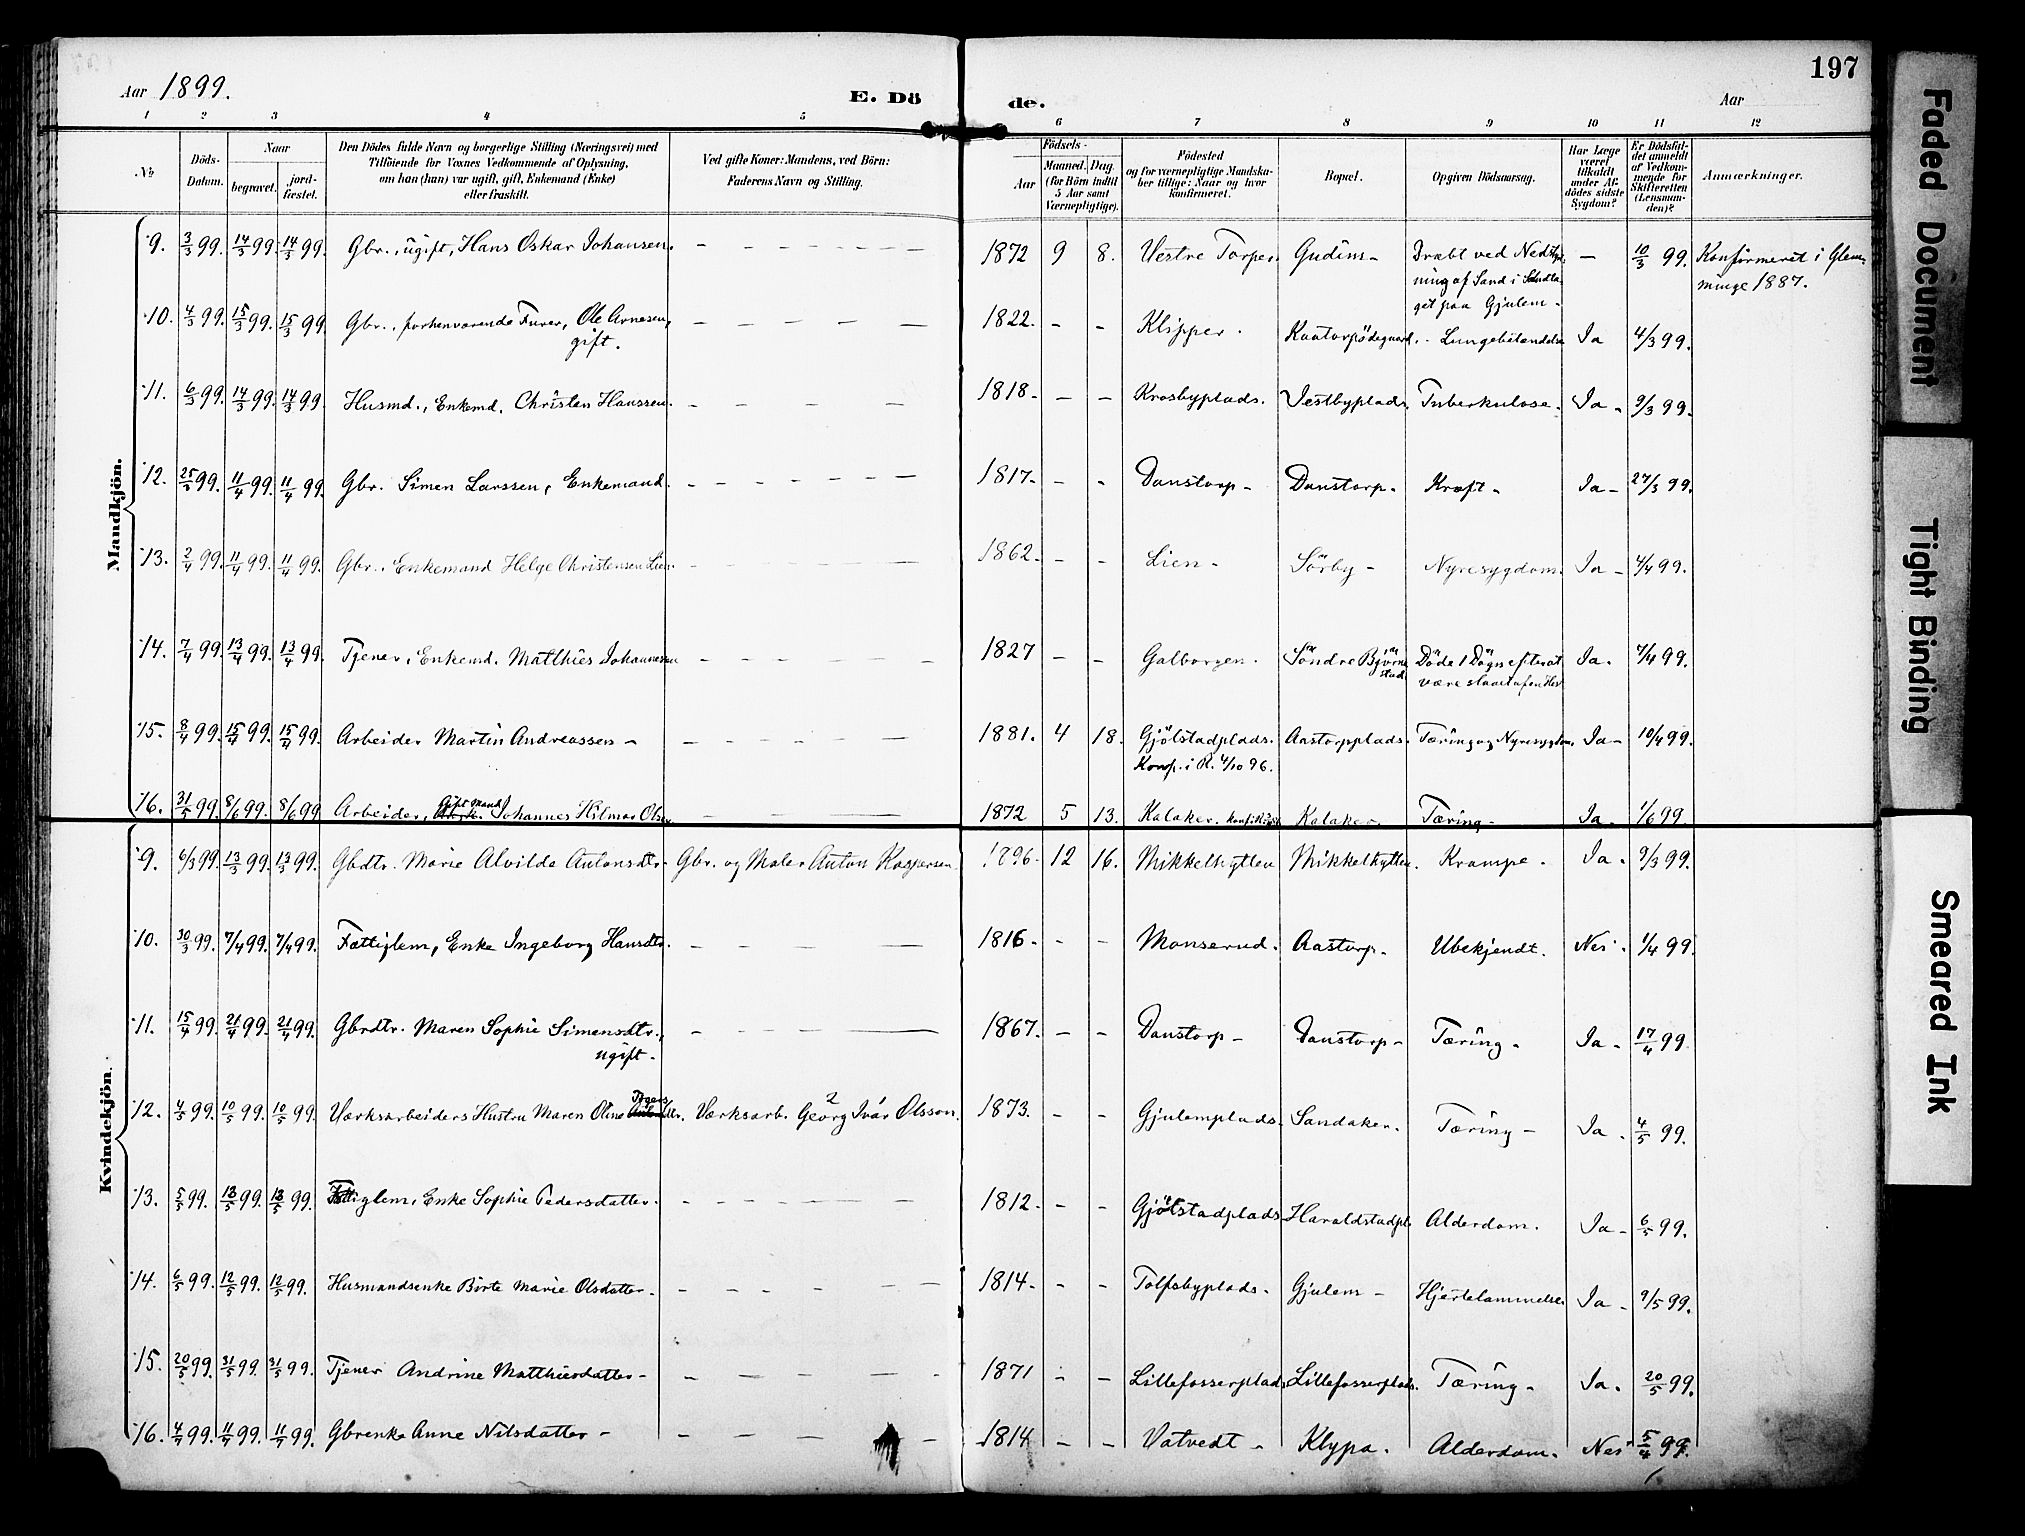 197
Aar 1899.
E. Dö
de.
Aar
1 2 3 4 5 6 7 8 9 10 11 12
No
Döds-
Datum.
Naar
begravet.
jord-
fæstet.
Den Dödes fulde Navn og borgerlige Stilling (Næringsvei) med
Tilföiende for Voxnes Vedkommende af Oplysning,
om han (hun) var ugift, gift, Enkemand (Enke)
eller fraskilt.
Ved gifte Koner: Mandens, ved Börn:
Faderens Navn og Stilling.
Födsels-
Aar
Maaned. Dag.
(for Börn indtil
5 Aar samt
Værnepligtige).
Födested
og for værnepligtige Mandska-
ber tillige: Naar og hvor
konfirmeret.
Bopæl.
Opgiven Dödsaarsag.
Har Læge
været
tilkaldt
under Af-
dödes sidste
Sygdom?
Er Dödsfal-
det anmeldt
af Vedkom-
mende for
Skifteretten
(Lensman-
den)?
Anmærkninger.
Mandkjön.
9. 3/3 99. 14/3 99. 14/3 99. Gbr., ugift, Hans Oskar Johansen. 1872 9 8. Vestre Torper. Gudim - Dræbt ved - 10/3 99. Konfirmeret i Glem-
ning af Sand i
minge 1887.
get paa Gjulem -
10. 4/3 99. 15/3 99. 15/3 99. Gbr., forhenværende Furer, Ole Arnesen, 1822. - - Klipper. Lungebetændelse Ja 4/3 99.
gift.
11. 6/3 99. 14/3 99. 14/3 99. Husmd., Enkemd. Christen Hanssen. 1818. - - Krosbyplads. Vestbyplads. Tuberkulose. Ja - 9/3 99.
12. 25/3 99. 11/4 99. 11/4 99. Gbr. Simen Larssen, Enkemand. 1817. - - Danstorp - Danstorp. Kræft - Ja - 27/3 99.
13. 2/4 99. 11/4 99. 11/4 99. Gbr., Enkemand Helge Christensen Lien. 1862. - - Lien - Sörby - Nyresygdom. Ja - 4/4 99.
14. 7/4 99. 13/4 99. 13/4 99. Tjener, Enkemd. Matthies Johannesen 1827 - - Galborgen. Söndre Bjørne Döde 1 Dögn efter at Ja. 7/4 99.
stad. være slaaet af en Hest
15. 8/4 99. 15/4 99. 15/4 99. Arbeider Martin Andreassen - 1881. 4 18. Gjölstadplads. Aastorpplads. Tæring og Nyresygdom. Ja - 10/4 99.
Konf. i R. 4/10 96.
16. 31/5 99. 8/6 99. 8/6 99 Arbeider, Gift Mand Johannes Hilmar Olsen 1872 5 13. Kalaker. Kalaker - Tæring - Ja. 1/6 99.
Kvindekjön.
9. 6/3 99. 13/3 99. 13/3 99. Gbdtr. Marie Alvilde Antonsdtr. Gbr. og Maler Anton Kaspersen. 1896. 12 16. Mikkelhytten Mikkelhytten. Krampe. Ja. 9/3 99.
10. 30/3 99. 7/4 99. 7/4 99. Fattiglem, Enke Ingeborg Hansdtr. 1816. - - Monserud. Aastorp. Ubekjendt. Nei. 1/4 99.
11. 15/4 99. 21/4 99. 21/4 99. Gbrdtr. Maren Sophie Simensdtr., 1867. - - Danstorp - Danstorp - Tæring. Ja. 17/4 99.
ugift.
12. 4/5 99. 10/5 99. 10/5 99. Værksarbeiders Hustru Maren Oline Værksarb. Georg Ivar Olsson. 1873. - - Gjulemplads. Sandaker. Tæring - Ja. 4/5 99.
13. 5/5 99. 13/5 99. 13/5 99. Fattiglem, Enke Sophie Pedersdatter. 1812. - - Gjölstadplads Haraldstadpl. Alderdom. Ja - 6/5 99.
14. 6/5 99. 12/5 99. 12/5 99. Husmandsenke Birte Marie Olsdatter. 1814. - - Tolfsbyplads. Gjulem - Hjertelammelse Ja - 9/5 99.
15. 20/5 99. 31/5 99. 31/5 99. Tjener Andrine Matthiesdatter - 1871 - - Lillefosserplads. Lillefosserplads. Tæring - Ja. 20/5 99.
16. 4/7 99. 11/7 99. 11/7 99. Gbrenke Anne Nilsdatter - 1814. - - Vatvedt - Klypa. Alderdom. Nei 99.
Faded Document
Tight Binding
Smeared Ink